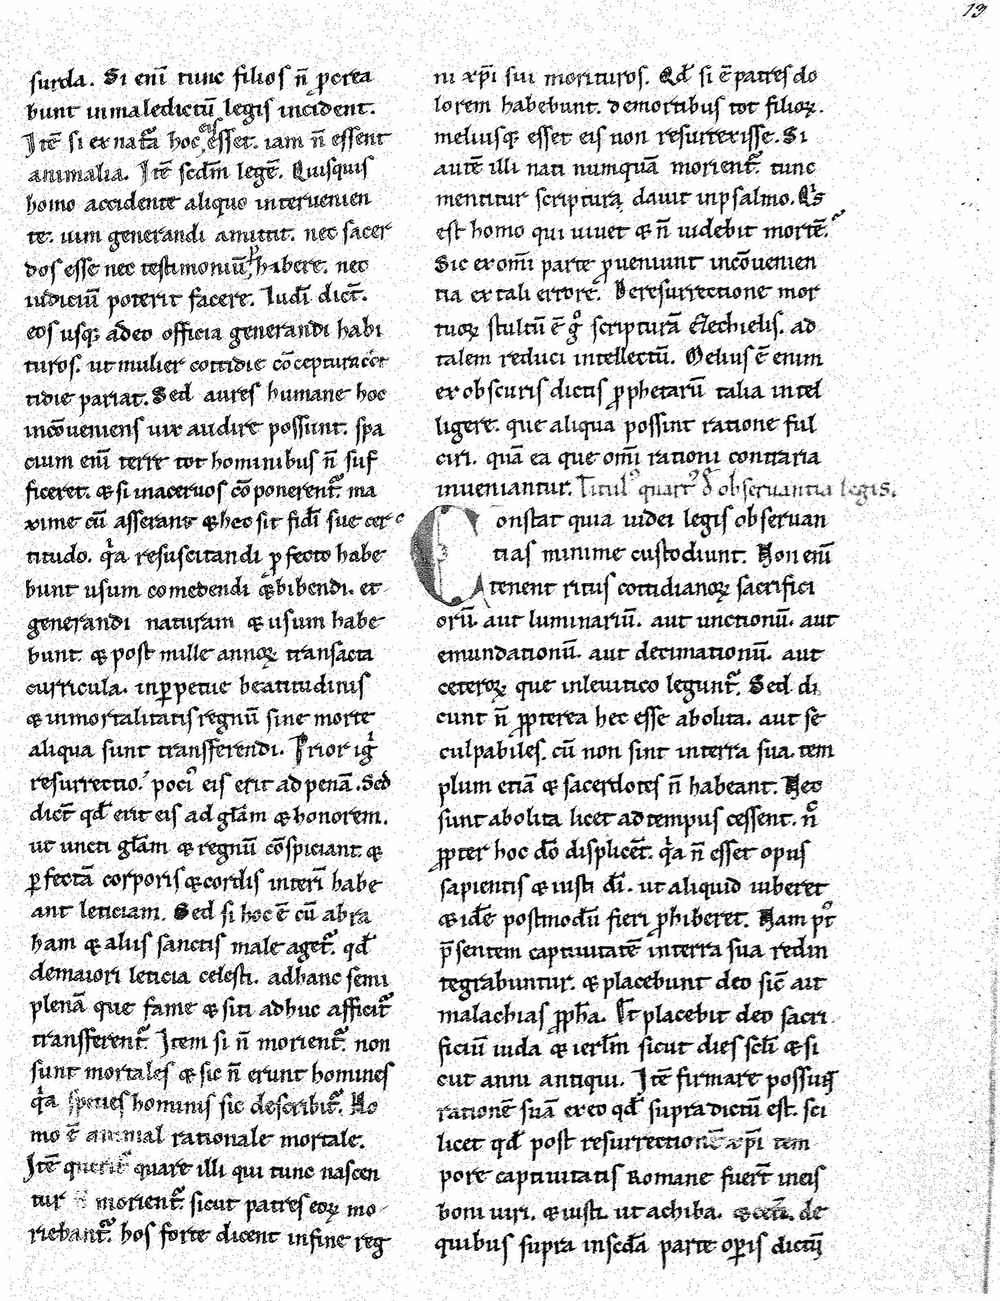 13
surda. Si enī tunc filios ñ perea
bunt inmaledictū legis incident.
Itē si ex natā hoc eis esset. iam ñ essent
animalia. Itē scdm̄ legē. Quisquis
homo accidente aliquo intervenien
te. uim generandi amittit. nec sacer
dos esse nec testimoniū p̄hibere. nec
iudiciū poterit facere. Iudī dict̄.
eos usq; adeo officia generandi habi
turos. ut mulier cottidie cōceptura cot
tidie pariat. Sed aures humane hoc
incōueniens uix audire possunt. spa
cium enī terre tot hominibus ñ suf
ficeret. & si inaceruos cōponerent̄. ma
xime cū asserant & hec sit fidī sue cer
titudo. qa resuscitandi pfecto habe
bunt usum comedendi & bibendi. et
generandi naturam & usum habe
bunt. & post mille annoꝝ transacta
curricula. inppetue beatitudinis
& inmortalitatis regnū sine morte
aliqua sunt transferendi. Prior igr̄
resurrectio. poci' eis erit ad penā. Sed
dict̄ qd̄ erit eis ad glām & honorem.
ut uncti glām & regnū cōspiciant. &
pfectā corporis & cordis interī habe
ant leticiam. Sed si hoc ē cū abra
ham & aliis sanctis male aget̄. qd̄
demaiori leticia celesti. adhanc semi
plenā que fame & siti adhuc afficit̄
transferent̄. Item si ñ morient̄. non
sunt mortales & sic ñ erunt homines
qa species hominis sic describit̄. Ho
mo ē animal rationale mortale.
Itē querit̄ quare illi qui tunc nascen
tur morient̄. sicut patres eoꝝ mo
riebant̄. hos forte dicent infine reg
ni xp̄i sui morituros. Qd̄ si ē patres do
lorem habebunt. demortibus tot filioꝝ.
meliusq; esset eis non resurrexisse. Si
autē illi nati numquā morient̄. tunc
mentitur scriptura dauit inpsalmo. Qs
est homo qui uiuet & ñ uidebit mortē.
Sic ex omī parte pueniunt incōuenien
tia ex tali errore. Deresurrectione mor
tuoꝝ stultū ē g° scripturā Ezechielis. ad
talem reduci intellectū. Melius ē enim
ex obscuris dictis pphetarū talia intel
ligere. que aliqua possint ratione ful
ciri. quā ea que omī rationi contraria
inueniantur. Titul' quart' d' obseruantia legis.
Constat quia iudei legis obseruan
tias minime custodiunt. Non enī
tenent ritus cottidianoꝝ sacrifici
orū. aut luminariū. aut unctionū. aut
emundationū. aut decimationū. aut
ceteroꝝ que inleuitico legunt̄. Sed di
cunt ñ ppterea hec esse abolita. aut se
culpabiles. cū non sint interra sua. tem
plum etiā & sacerdotes ñ habeant. Hec
sunt abolita licet ad tempus cessent. ñ
ppter hoc dō displicet̄. qa ñ esset opus
sapientis & iusti dī. ut aliquid iuberet
& idē postmodū fieri phiberet. Nam pt'
p̄sentem captiuitatē interra sua redin
tegrabuntur. & placebunt deo sic̄ ait
malachias ppha. Et placebit deo sacri
ficiū iuda & ierlm̄ sicut dies sc̄li & si
cut anni antiqui. Itē firmare possunt
rationē suā ex eo qd̄ supradictū est. sci
licet qd̄ post resurrectionē xp̄i tem
pore captiuitatis Romane fuer̄t ineis
boni uiri. & iusti. ut achiba. & cet̄i. de
quibus supra inscdā parte opis dictū